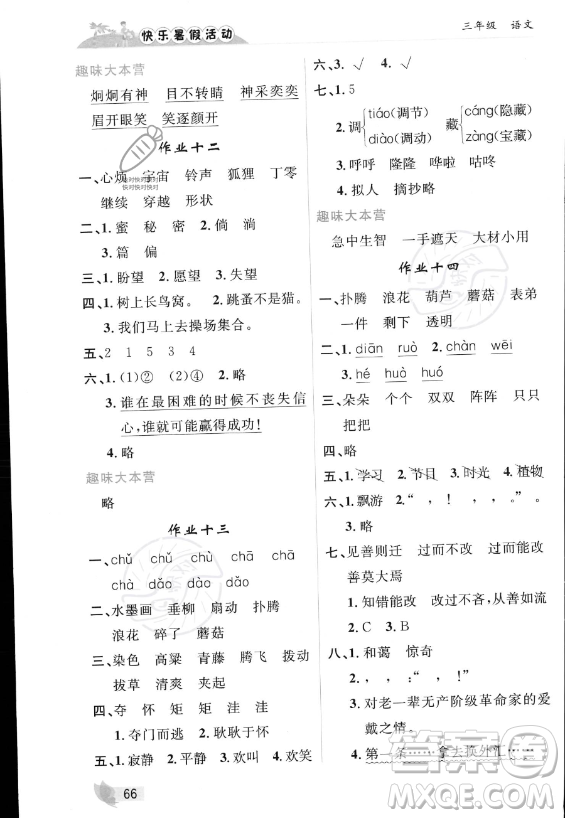 快乐暑假活动
三年级 语文
趣味大本营
炯炯有神 目不转睛 神采奕奕
眉开眼笑 笑逐颜开
作业十二
一、心烦 宇宙 铃声 狐狸 丁零
继续 穿越 形状
二、1. 蜜 秘 密 2. 倘 淌
3. 篇 偏
三、1. 盼望 2. 愿望 3. 失望
四、1. 树上长鸟窝。 2. 跳蚤不是猫。
3. 我们马上去操场集合。
五、2 1 5 3 4
六、1. (1)② (2)④ 2. 略
3. 谁在最困难的时候不丧失信
心,谁就可能赢得成功!
4. 略
趣味大本营
略
作业十三
一、chǔ chǔ chù chā chā
chā dào dǎo dǎo
二、水墨画 垂柳 扇动 扑腾
浪花 碎了 蘑菇
三、染色 高粱 青藤 腾飞 拨动
拔草 清爽 夹击
四、夺 怀 矩 矩 洼 洼
1. 夺门而逃 2. 耿耿于怀
五、1. 寂静 2. 平静 3. 欢叫 4. 欢笑
66
六、3. ✓ 4. ✓
七、1. 5
2. 调 tiáo(调节) diào(调动) 藏 cáng(隐藏) zàng(宝藏)
3. 呼呼 隆隆 哗啦 咕咚
4. 拟人 摘抄略
趣味大本营
急中生智 一手遮天 大材小用
作业十四
一、扑腾 浪花 葫芦 蘑菇 表弟
一件 剩下 透明
二、1. diān ruò 2. chàn wēi
3. hé huò huó
三、朵朵 个个 双双 阵阵 只只
把把
四、略
五、1. 学习 2. 节目 3. 时光 4. 植物
六、1. 飘游 2. “ , ! ” “ , 。”
3. 略
七、见善则迁 过而不改 过而能改
善莫大焉
1. 知错能改 改过不吝 从善如流
2. C 3. B
八、1. 和蔼 惊奇
2. , , :“ ! ”
3. 对老一辈无产阶级革命家的爱
戴之情。
4. 第一条……拿去换外汇……